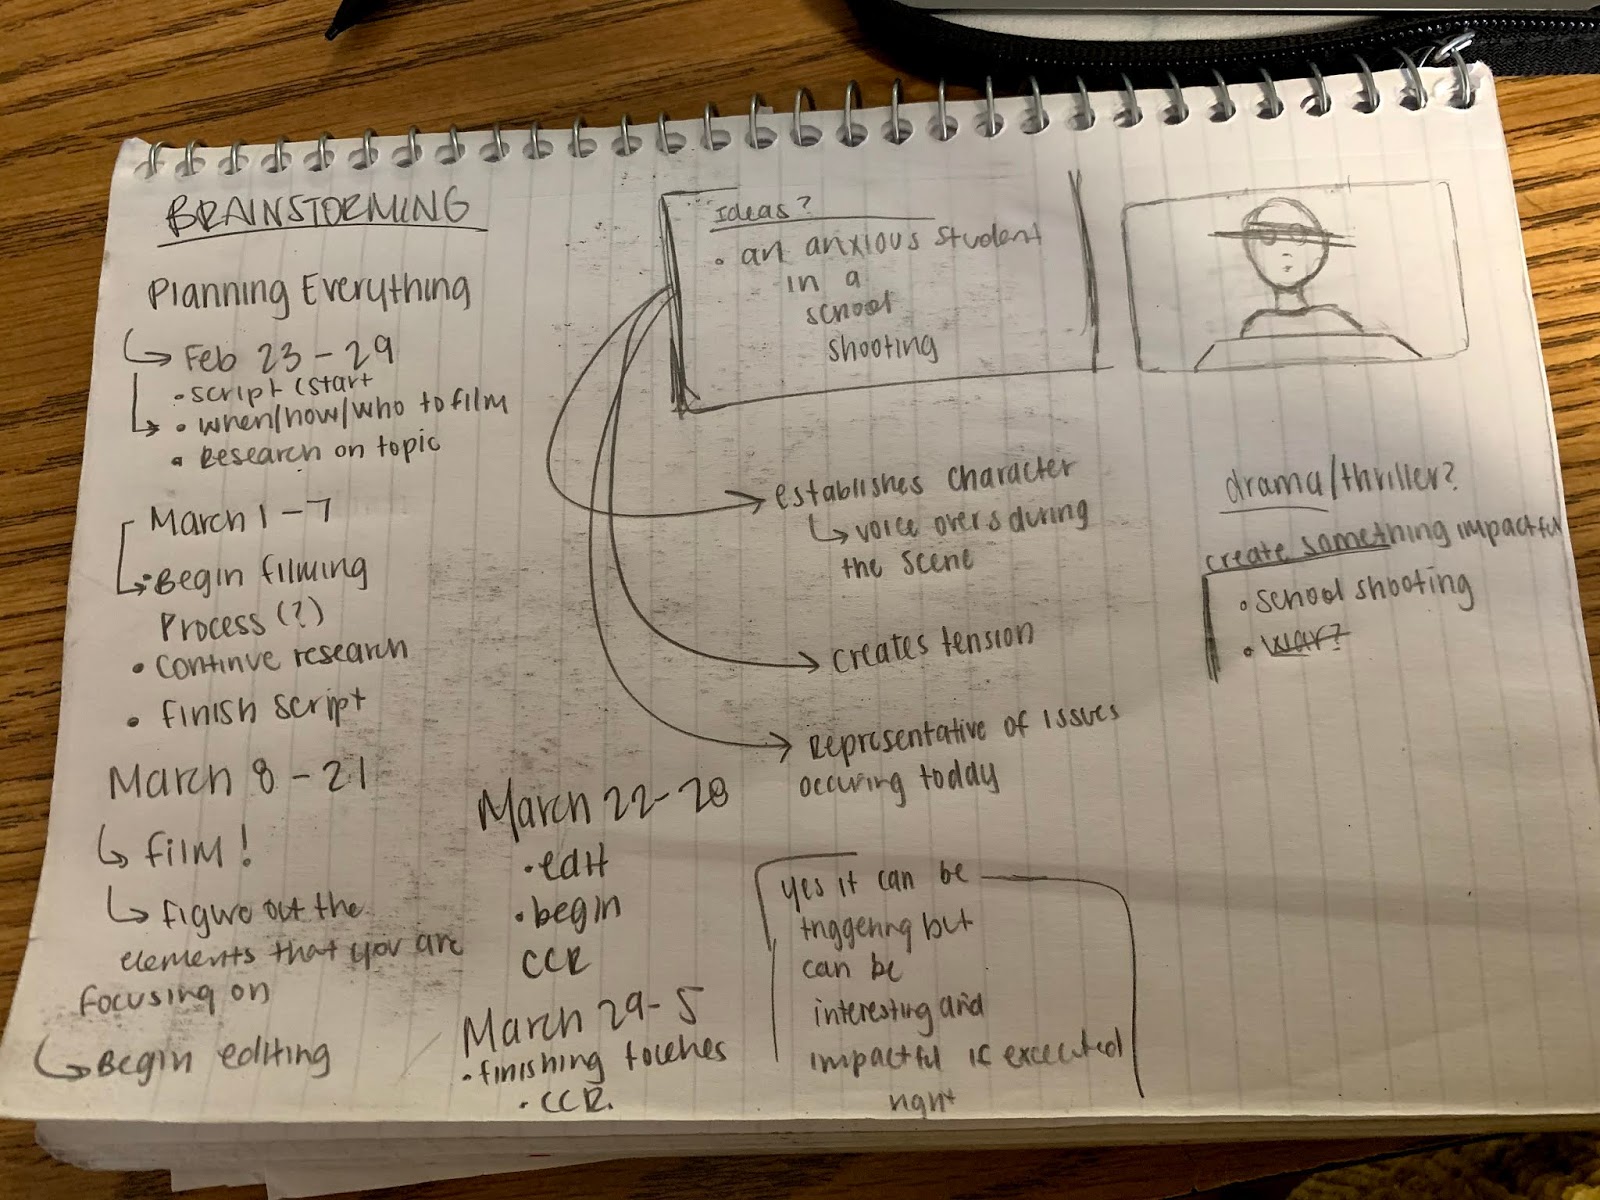 BRAINSTORMING
Planning Everything
Feb 23 - 29
• script (start
• when/how/who to film
• Research on topic
March 1 - 7
• Begin filming
Process (?)
• continue research
• Finish script
March 8 - 21
Film!
figure out the
elements that you are
focusing on
Begin editing
March 22 - 28
• edit
• begin
CCR
March 29 - 5
• finishing touches
• CCR.
Ideas?
• an anxious student
in a
school
shooting
establishes character
voice overs during
the scene
creates tension
Representative of issues
occuring today
yes it can be
triggering but
can be
interesting and
impactful if executed
right
drama/thriller?
create something impactful
• school shooting
• war?